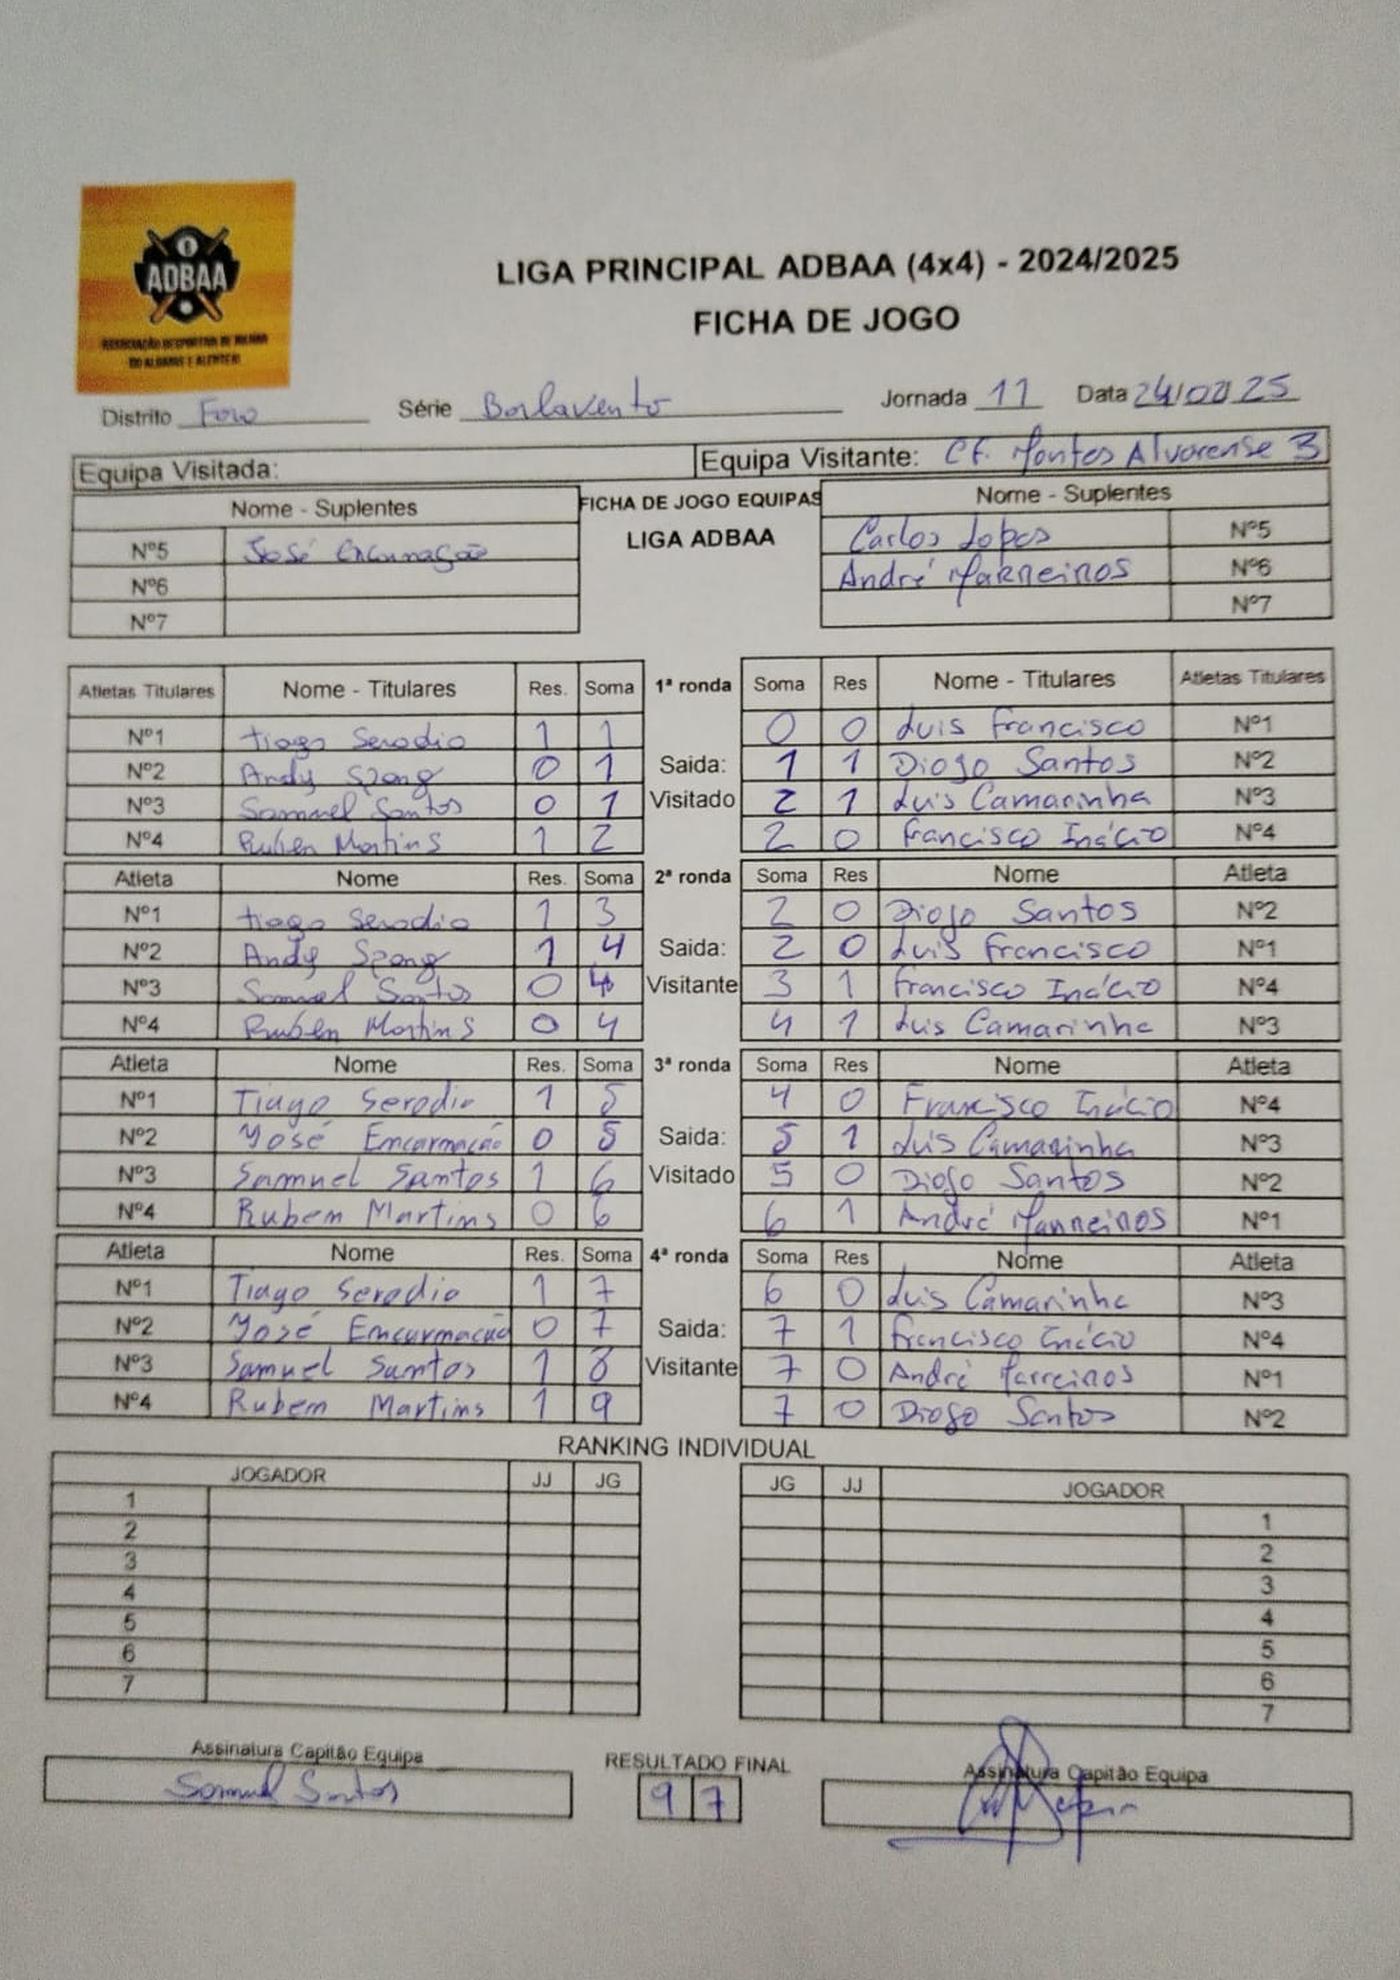 ADBAA
ASSOCIAÇÃO DESPORTIVA DE BILHAR
DO ALGARVE E ALENTEJO
LIGA PRINCIPAL ADBAA (4x4) - 2024/2025
FICHA DE JOGO
Distrito Faro Série Barlavento Jornada 11 Data 24/02/25
Equipa Visitada: Equipa Visitante: Cf. Montes Alvorense 3
Nome - Suplentes FICHA DE JOGO EQUIPAS Nome - Suplentes
LIGA ADBAA
Nº5 José Encarnação Carlos Lopes Nº5
Nº6 André Marreiros Nº6
Nº7 Nº7
Atletas Titulares Nome - Titulares Res. Soma 1ª ronda Soma Res Nome - Titulares Atletas Titulares
Nº1 Tiago Serodio 1 1 0 0 Luis Francisco Nº1
Nº2 Andy Spong 0 1 Saida: 1 1 Diogo Santos Nº2
Nº3 Sammuel Santos 0 1 Visitado 2 1 Luis Camarinha Nº3
Nº4 Ruben Martins 1 2 2 0 Francisco Inácio Nº4
Atleta Nome Res. Soma 2ª ronda Soma Res Nome Atleta
Nº1 Tiago Serodio 1 3 2 0 Diogo Santos Nº2
Nº2 Andy Spong 1 4 Saida: 2 0 Luis Francisco Nº1
Nº3 Samuel Santos 0 4 Visitante 3 1 Francisco Inácio Nº4
Nº4 Ruben Martins 0 4 4 1 Luis Camarinha Nº3
Atleta Nome Res. Soma 3ª ronda Soma Res Nome Atleta
Nº1 Tiago Serodio 1 5 4 0 Francisco Inácio Nº4
Nº2 José Encarnação 0 5 Saida: 5 1 Luis Camarinha Nº3
Nº3 Samnuel Santos 1 6 Visitado 5 0 Diogo Santos Nº2
Nº4 Rubem Martins 0 6 6 1 André Marreiros Nº1
Atleta Nome Res. Soma 4ª ronda Soma Res Nome Atleta
Nº1 Tiago Serodio 1 7 6 0 Luis Camarinha Nº3
Nº2 José Encarnação 0 7 Saida: 7 1 Francisco Inácio Nº4
Nº3 Samuel Santos 1 8 Visitante 7 0 André Marreiros Nº1
Nº4 Rubem Martins 1 9 7 0 Diogo Santos Nº2
RANKING INDIVIDUAL
JOGADOR JJ JG JG JJ JOGADOR
1 1
2 2
3 3
4 4
5 5
6 6
7 7
Assinatura Capitão Equipa RESULTADO FINAL Assinatura Capitão Equipa
Samuel Santos 9 7